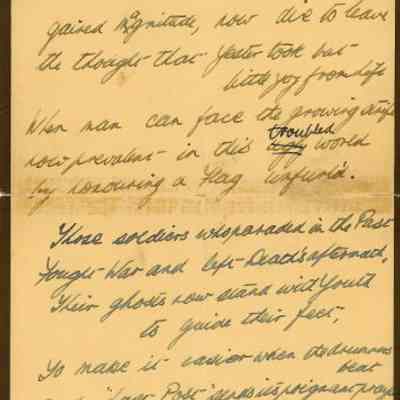 gained magnitude, now die to leave
the thought that yester took but
little joy from life
When man can face the growing strife
now prevalent in this ugly troubled world
by honouring a Flag unfurl'd.
Those soldiers who paraded in the Past
Fought War and left Death's aftermath,
Their ghosts now stand with Youth
to guide their feet,
To make it easier when the drummers
beat
"Last Post" sends its poignant prayer